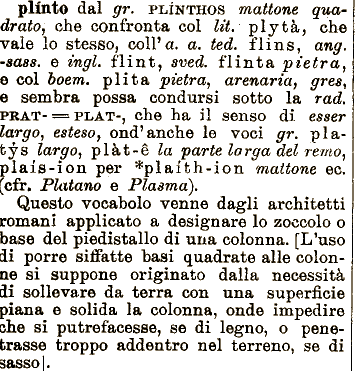 plínto dal gr. PLÍNTHOS mattone qua-
drato, che confronta col lit. plytà, che
vale lo stesso, coll' a. a. ted. flins, ang.
-sass. e ingl. flint, sved. flinta pietra,
e col boem. plita pietra, arenaria, gres,
e sembra possa condursi sotto la rad.
PRAT- = PLAT-, che ha il senso di esser
largo, esteso, ond'anche le voci gr. pla-
tỳs largo, plàt-ê la parte larga del remo,
plais-ion per *plaith-ion mattone ec.
(cfr. Platano e Plasma).
Questo vocabolo venne dagli architetti
romani applicato a designare lo zoccolo o
base del piedistallo di una colonna. [L'uso
di porre siffatte basi quadrate alle colon-
ne si suppone originato dalla necessità
di sollevare da terra con una superficie
piana e solida la colonna, onde impedire
che si putrefacesse, se di legno, o pene-
trasse troppo addentro nel terreno, se di
sasso].